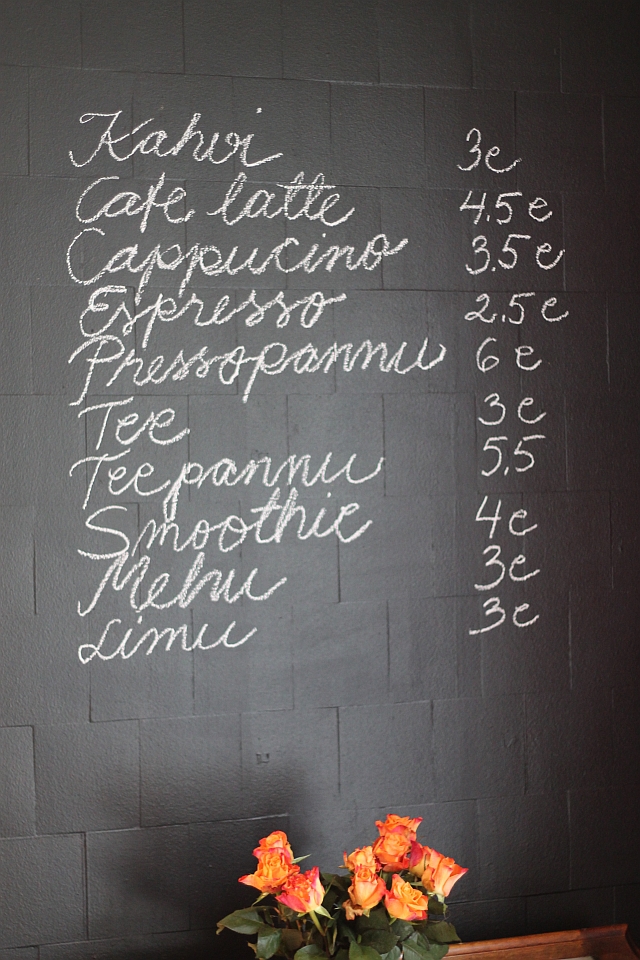 Kahvi 3e
Cafe latte 4.5 e
Cappucino 3.5 e
Espresso 2.5 e
Pressopannu 6 e
Tee 3e
Teepannu 5.5
Smoothie 4e
Mehu 3e
Limu 3e